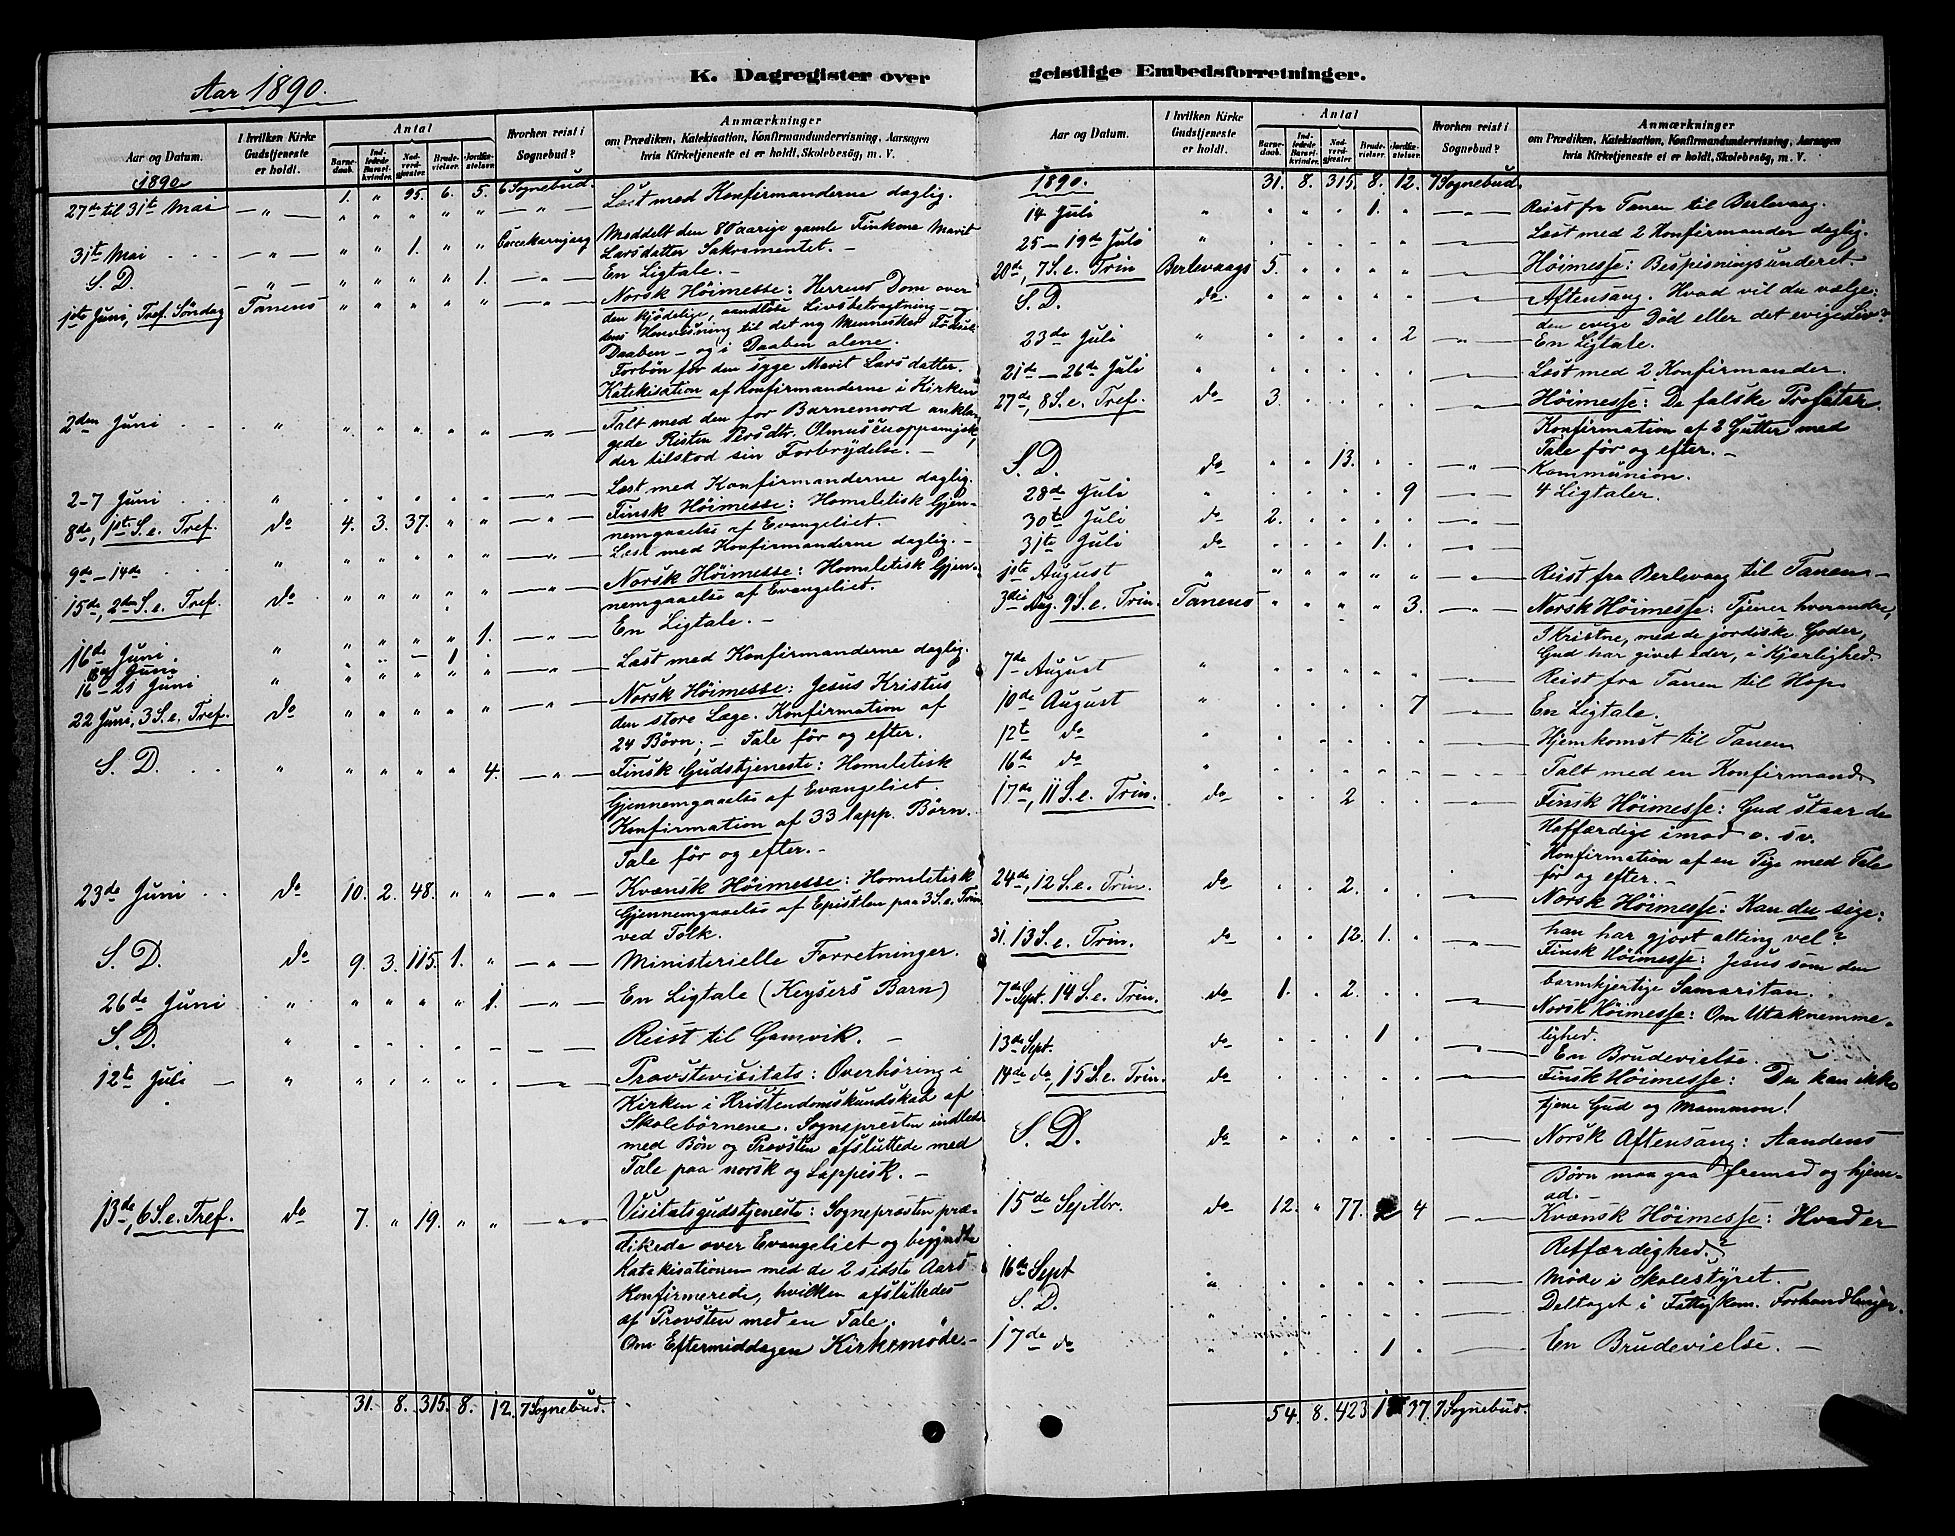 Aar 1890.
K. Dagregister over
Aar og Datum.
I hvilken Kirke Gudstjeneste er holdt.
Antal
Barnedaab.
Indledede Barselkvinder.
Nadverdgjester.
Brudevielser.
Jordfæstelser.
Hvorhen reist i Sognebud?
Anmærkninger
om Prædiken, Katekisation, Konfirmandundervisning, Aarsagen
hvis Kirketjeneste ei er holdt, Skolebesög, m. V.
1890
1. " 95. 6. 5. 6 Sognebud.
27de til 31te Mai — " — " " " " " — " — Læst med Konfirmanderne daglig.
31te Mai — " — " " 1. " " Meddelt den 80 aarige gamle Finkone Marit
Larsdatter Sakramentet. —
S. D. — " — " " " " 1. — " — En Ligtale. —
1ste Juni, Tref. Søndag Tanens " " " " " — " — Norsk Høimesse: Herrens Dom over
den kjødelige, aandløse Livsbetragtning — og
dens Henvisning til det ny Menneskes Fødsel i
Daaben — og i Daaben alene.
Forbøn for den syge Marit Larsdatter.
Katekisation af Konfirmanderne i Kirken
2den Juni " " " " " " — " — Talt med den for Barnemord ankla-
gede Risten Persdtr.
der tilstod sin Forbrydelse. —
2-7 Juni " " " " " " — " — Læst med Konfirmanderne daglig.
8de, 1ste S. e. Tref. do 4. 3. 37. " " — " — Finsk Høimesse: Homeletisk Gjen-
nemgaaelse af Evangeliet.
9de—14de " " " " " " — " — Læst med Konfirmanderne daglig. —
15de, 2den S. e. Tref. do " " " " " — " — Norsk Høimesse: Homeletisk Gjen-
nemgaaelse af Evangeliet.
16de Juni. " " " " " 1. — " — En Ligtale. —
Juni " " — 1 "
16-21 Juni " " " " " " — " — Læst med Konfirmanderne daglig.
22 Juni, 3 S. e. Tref. do " " " " " — " — Norsk Høimesse: Jesus Kristus
den store Læge. Konfirmation af
24 Børn; — Tale før og efter.
S. D. " " " " " 4. — " — Finsk Gudstjeneste: Homeletisk
Gjennemgaaelse af Evangeliet.
Konfirmation af 33 lapp. Børn.
Tale før og efter. —
23de Juni do 10. 2. 48. " " — " — Kvænsk Høimesse: Homeletisk
Gjennemgaaelse af Epistlen paa 3 S. e. Trin.
ved Tolk.
S. D. do 9. 3. 115. 1. " — " — Ministerielle Forretninger.
26de Juni " " " " " 1. — " — En Ligtale (Keysers Barn)
S. D. " " " " " " — — Reist til Gamvik. —
12te Juli — " " " " " " — " — Provstevisitats: Overhøring i
Kirken i Kristendomskundskab af
Skolebørnene. Sognepresten indledede
med Bøn og Provsten afsluttede med
Tale paa norsk og Lappisk. —
13de, 6 S. e. Tref. do 7. " 19. " " — " — Visitatsgudstjeneste: Sognepresten præ-
dikede over Evangeliet og begyndte
Katekisationen med de 2 sidste Aars
Konfirmerede, hvilken afsluttedes
af Provsten med en Tale.
Om Eftermiddagen Kirkemøde. —
31. 8. 315. 8. 12. 7 Sognebud.
geistlige Embedsforretninger.
Aar og Datum.
I hvilken Kirke Gudstjeneste er holdt.
Antal
Barnedaab.
Indledede Barselkvinder.
Nadverdgjester.
Brudevielser.
Jordfæstelser.
Hvorhen reist i Sognebud?
Anmærkninger
om Prædiken, Katekisation, Konfirmandundervisning, Aarsagen
hvis Kirketjeneste ei er holdt, Skolebesög, m. V.
1890. 31. 8. 315. 8. 12. 7 Sognebud.
14 Juli " " " " 1. " — " — Reist fra Tanen til Berlevaag.
25—19de Juli " " " " " " — " — Læst med 2 Konfirmander daglig.
20de, 7 S. e. Trin Berlevaags 5. " " " " — " — Høimesse: Bespisningsunderet.
S. D. do " " " " " — " — Aftensang. Hvad vil du vælge:
den evige Død eller det evige Liv?
23de Juli " " " " " 2 — " — En Ligtale.
21de—26de Juli " " " " " — " — Læst med 2 Konfirmander.
27de, 8 S. e. Tref. do 3. " " " " — " — Høimesse: De falske Profeter.
Konfirmation af 2 Gutter med
Tale før og efter. —
S. D. do " " 13. " " — " — Kommunion.
28de Juli " " " " " 9 — " — 4 Ligtaler.
30te Juli do 2. " " " " — " —
31te Juli do " " " 1. " — " —
1ste August " " " " " " — " — Reist fra Berlevaag til Tanen —
3die Aug. 9 S. e. Trin. Tanens " " " " 3. — " — Norsk Høimesse: Tjener hverandre,
I Kristne, med de jordiske Goder,
Gud har givet eder, i Kjærlighed.
7de August " " " " " " — " — Reist fra Tanen til Hop.
10de August " " " " " 7 — " — En Ligtale.
12te do " " " " " — " — Hjemkomst til Tanen
16de do " " " " " " — " — Talt med en Konfirmand
17de, 11 S. e. Trin. do " " 2 " " — " — Finsk Høimesse: Gud staar de
Hoffærdige imod o. sv.
Konfirmation af en Pige med Tale
før og efter. —
24de, 12 S. e. Trin. do " " 2. " " — " — Norsk Høimesse: Kan du sige:
han har gjort alting vel?
31. 13 S. e. Trin. do " " 12. 1. " — " — Finsk Høimesse: Jesus som den
barmhjertige Samaritan.
7de Sept. 14 S. e. Trin. do 1. " 2. " " — " — Norsk Høimesse: Om Utaknemme-
lighed.
13de Sept. do " " " 1 " — " — En Brudevielse.
14de do, 15 S. e. Trin. do " " " " " — " — Finsk Høimesse: Du kan ikke
tjene Gud og Mammon!
S. D. do " " " " " — — Norsk Aftensang: Aandens
Børn maa gaa fremad og hjem-
ad. —
15de Septbr. do 12. " 77. 2 4 — " — Kvænsk Høimesse: Hvad er
Retfærdighed?
16de Sept " " " " " " — " — Møde i Skolestyret.
S. D. " " " " " " — " — Deltaget i Fattigkom. Forhandlinger.
17de do " " " " 1 " — " — En Brudevielse. —
54. 8. 423 37. 7 Sognebud.